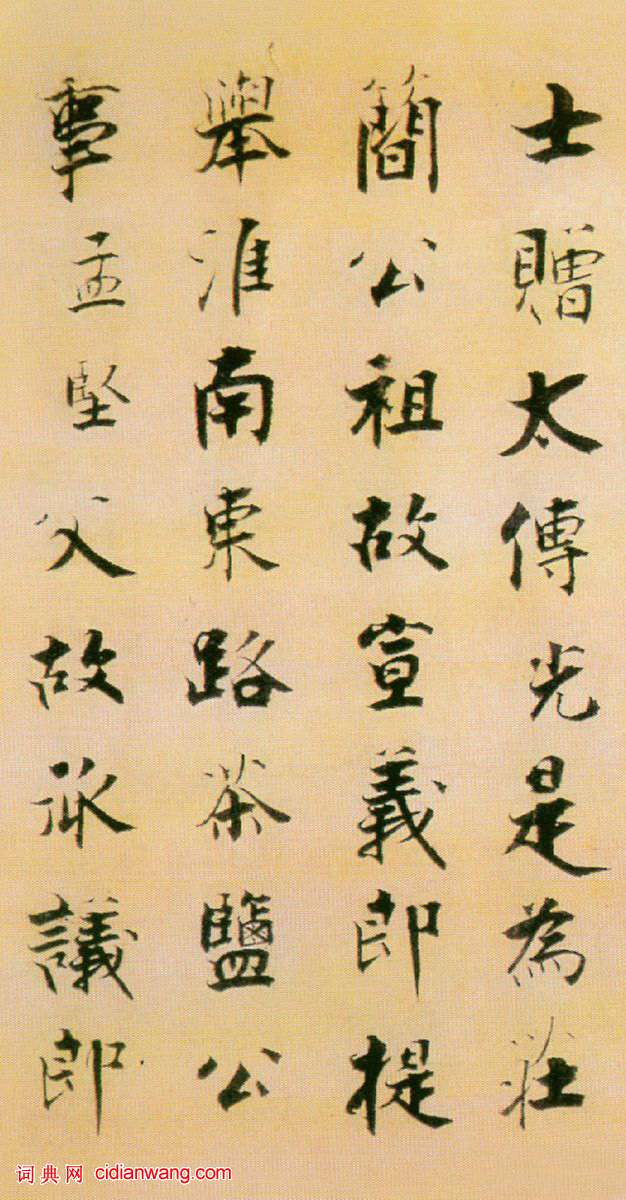 士贈太傅光是為莊
簡公祖故宣義郎提
舉淮南東路茶鹽公
事孟堅父故承議郎
词典网 cidianwang.com